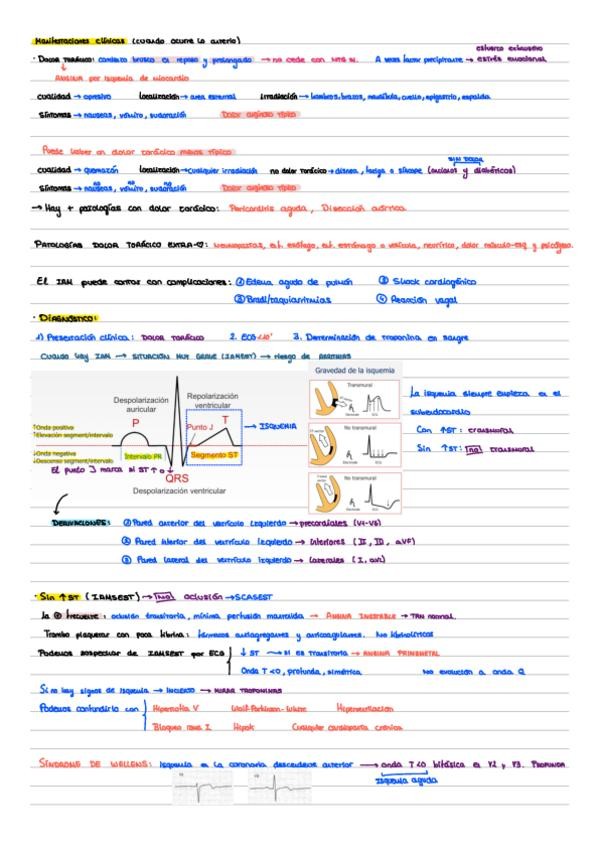 Manifestaciones clínicas (cuando ocurre lo anterior)
esfuerzo extenuativo
· DOLOR TORÁCICO: comienzo brusco en reposo y prolongado → no cede con NTG SL. A veces factor precipitante → estrés emocional
ANGINA por isquemia de miocardio
cualidad → opresivo localización → área esternal irradiación → hombros, brazos, mandíbula, cuello, epigastrio, espalda
síntomas → náuseas, vómito, sudoración Dolor anginoso típico
Puede haber un dolor torácico menos típico
SIN DOLOR
cualidad → quemazón localización → cualquier irradiación no dolor torácico → disnea, fatiga o síncope (ancianos y diabéticos)
síntomas → no náuseas, no vómito, no sudoración Dolor anginoso típico
→ Hay + patologías con dolor torácico: Pericarditis aguda, Disección aórtica
PATOLOGÍAS DOLOR TORÁCICO EXTRA-♡: neumopatías, enf. esófago, enf. estómago o vesícula, neurítico, dolor músculo-esq y psicógeno.
El IAM puede cursar con complicaciones: ① Edema agudo de pulmón ③ Shock cardiogénico
② Bradi/taquiarritmias ④ Reacción vagal
· DIAGNÓSTICO:
1) Presentación clínica: DOLOR TORÁCICO 2. ECG <10' 3. Determinación de troponina en sangre
Cuando hay IAM → SITUACIÓN MUY GRAVE (IAMEST) → riesgo de ARRITMIAS
Gravedad de la isquemia
Transmural
Electrode
ECG
No transmural
Electrode
ECG
No transmural
Electrode
ECG
Despolarización auricular
Repolarización ventricular
P
Punto J
T
→ ISQUEMIA
↑Onda positiva
↑Elevación segment/intervalo
↓Onda negativa
↓Descenso segment/intervalo
Intervalo PR
Segmento ST
El punto J marca si ST ↑ o ↓
QRS
Despolarización ventricular
La isquemia siempre empieza en el
subendocardio
Con ↑ST: transmural
Sin ↑ST: no transmural
DERIVACIONES: ① Pared anterior del ventrículo izquierdo → precordiales (V1-V6)
② Pared inferior del ventrículo izquierdo → Inferiores (II, III, aVF)
③ Pared lateral del ventrículo izquierdo → Laterales (I, aVL)
· Sin ↑ST (IAMSEST) → no oclusión → SCASEST
La ⊕ frecuente: oclusión transitoria, mínima perfusión mantenida → ANGINA INESTABLE → TRN normal.
Trombo plaquetar con poca fibrina: fármacos antiagregantes y anticoagulantes. No fibrinolíticos
Podemos sospechar de IAMSEST por ECG ↓ ST → si es transitoria → ANGINA PRINZMETAL
Onda T<0, profunda, simétrica No evolución a onda Q
Si no hay signos de isquemia → INCIERTO → MIRAR TROPONINAS
Podemos confundirlo con Hipertrofia V Wolf-Parkinson-White Hiperventilación
Bloqueo rama I HipoK Cualquier cardiopatía crónica
SÍNDROME DE WELLENS: Isquemia en la coronaria descendente anterior → onda T<0 bifásica en V2 y V3. PROFUNDA
Isquemia aguda
V2
V3